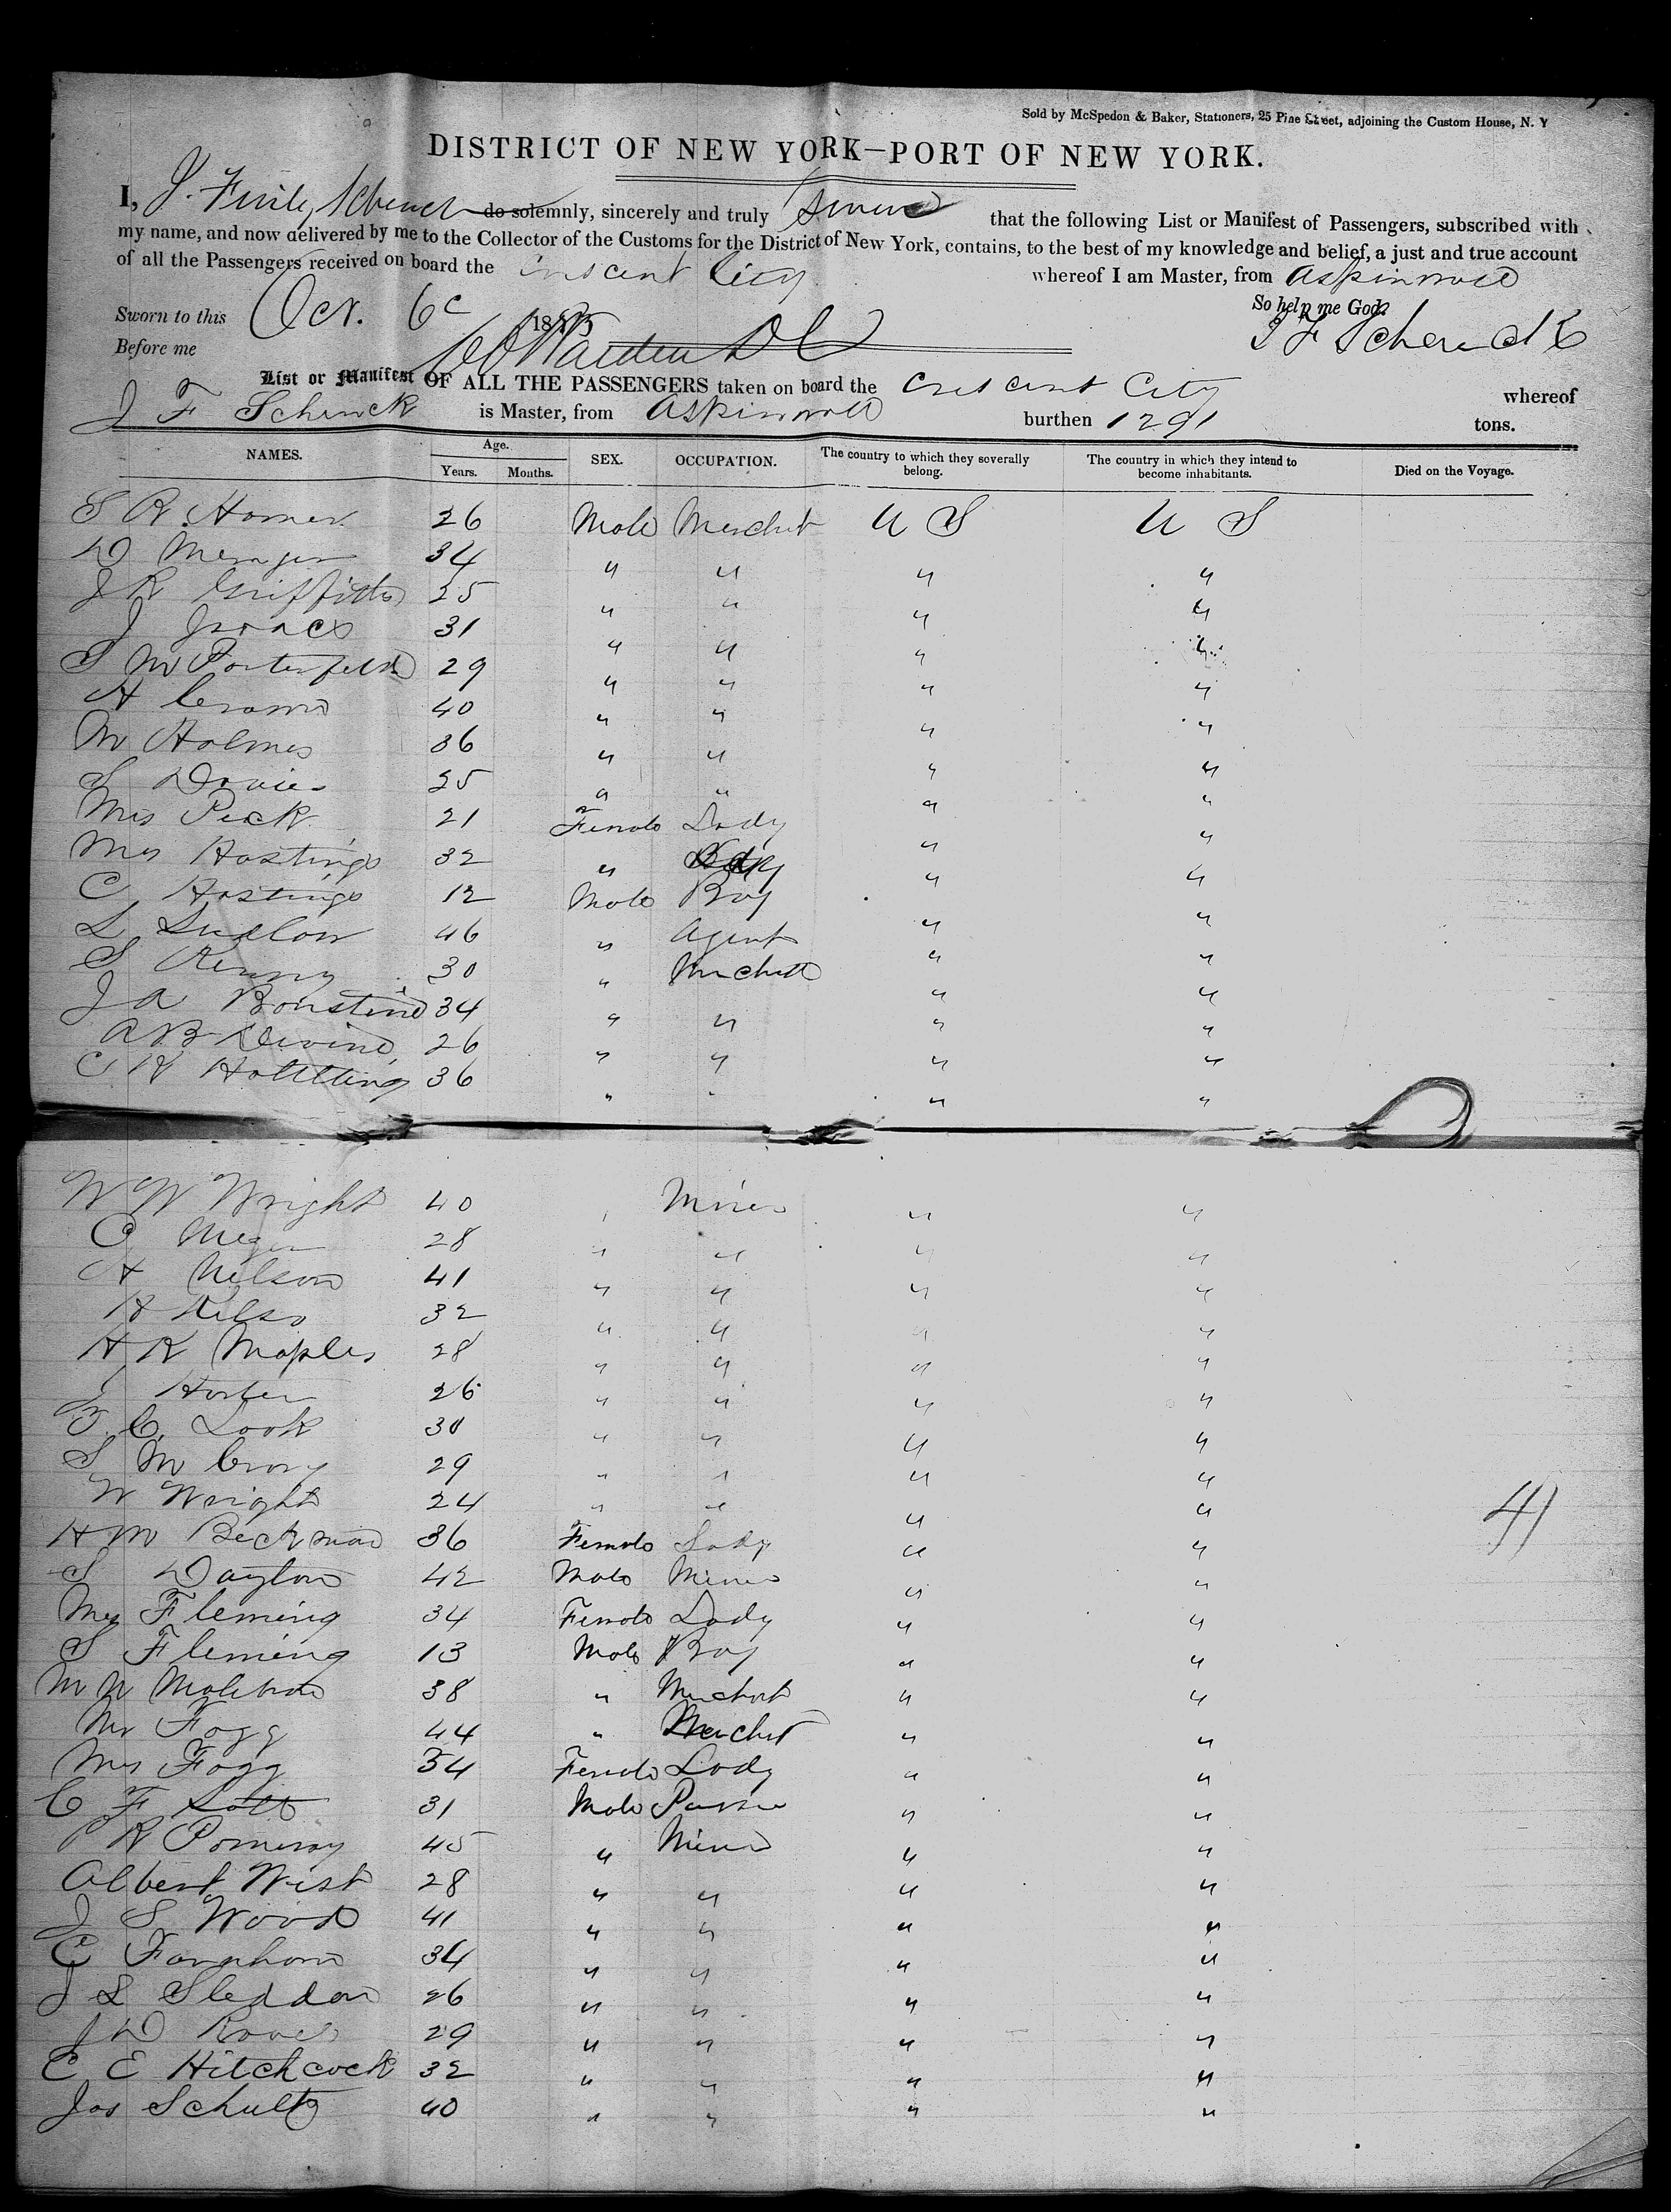 Sold by McSpedon & Baker, Stationers, 25 Pine Street, adjoining the Custom House, N. Y
DISTRICT OF NEW YORK—PORT OF NEW YORK.
I, J. Finly Schenck do solemnly, sincerely and truly swear that the following List or Manifest of Passengers, subscribed with
my name, and now delivered by me to the Collector of the Customs for the District of New York, contains, to the best of my knowledge and belief, a just and true account
of all the Passengers received on board the Crescent City whereof I am Master, from Aspinwall
Sworn to this Oct. 6 185 So help me God.
Before me J F Schenck
List or Manifest OF ALL THE PASSENGERS taken on board the Crescent City whereof
J F Schenck is Master, from Aspinwall burthen 1291 tons.
NAMES. Age. Years. Months. SEX. OCCUPATION. The country to which they severally belong. The country in which they intend to become inhabitants. Died on the Voyage.
S R Homer 26 Male Merchnt U S U S
D 34 " " " "
J R Griffitts 25 " " " "
J Isaacs 31 " " " "
S M Porterfield 29 " " " "
A 40 " " " "
M Holmes 36 " " " "
S Davies 25 " " " "
Mrs Peck 21 Female Lady " "
Mrs Hastings 32 " " "
C Hastings 12 Male Boy " "
L Ludlow 46 " Agent " "
S Kenny 30 " Merchntt " "
J A 34 " " " "
A B Devine 26 " " " "
C H 36 " " " "
W W Wright 40 " Miner " "
C Meyer 28 " " " "
A Nelson 41 " " " "
H Kelso 32 " " " "
H K Maples 28 " " " "
J 26 " " " "
T. C. Look 30 " " " "
S M Crory 29 " " " "
W Wright 24 " " " "
H M Beckman 36 Female Lady " "
S Dayton 42 Male Miner " "
Mrs Fleming 34 Female Lady " "
S Fleming 13 Male Boy " "
M N 38 " Merchant " "
Mr Fogg 44 " Merchnt " "
Mrs Fogg 34 Female Lady " "
C F Lott 31 Male Purser " "
P R Pomeroy 45 " Miner " "
Albert West 28 " " " "
J S Wood 41 " " " "
C Farnham 34 " " " "
J L Sleddon 26 " " " "
J D 29 " " " "
C E Hitchcock 32 " " " "
Jas Schultz 40 " " " "
41